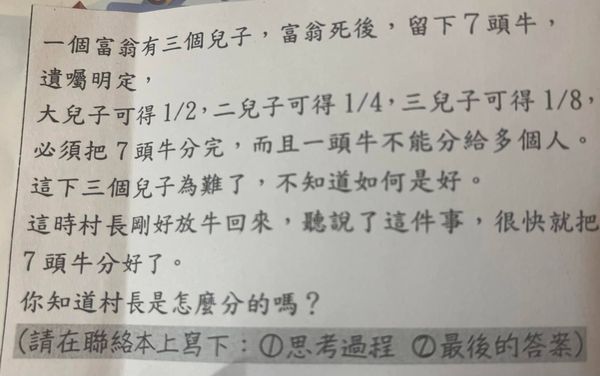 一個富翁有三個兒子，富翁死後，留下7頭牛，
遺囑明定，
大兒子可得1/2，二兒子可得1/4，三兒子可得1/8，
必須把7頭牛分完，而且一頭牛不能分給多個人。
這下三個兒子為難了，不知道如何是好。
這時村長剛好放牛回來，聽說了這件事，很快就把
7頭牛分好了。
你知道村長是怎麼分的嗎？
(請在聯絡本上寫下：①思考過程 ❷最後的答案)